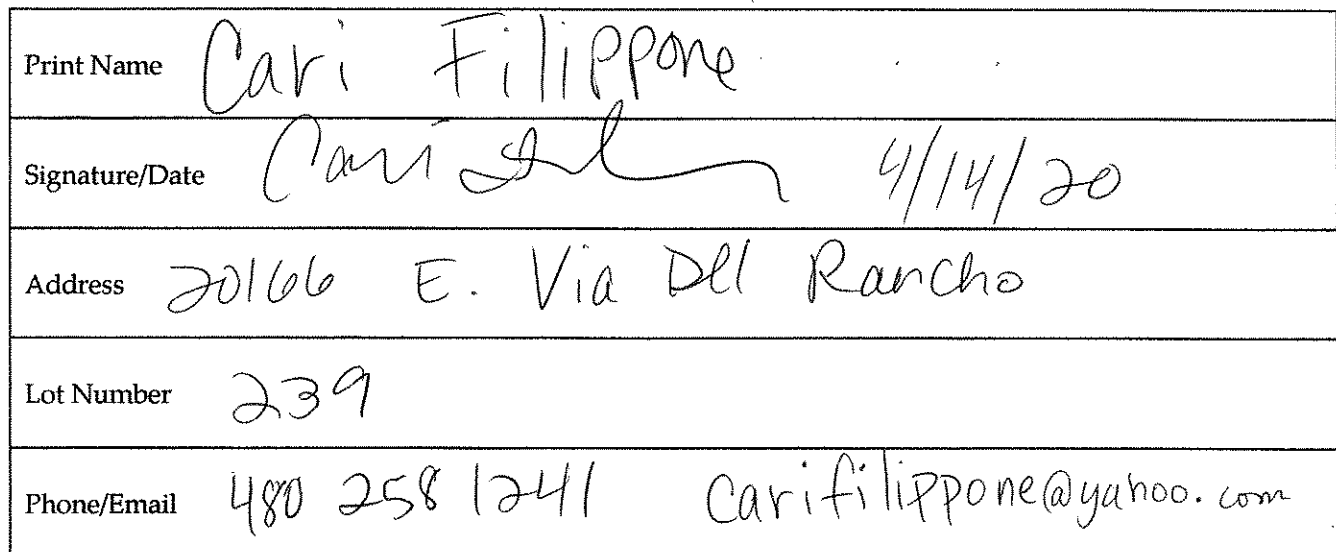 Print Name Cari Filippone
Signature/Date Cari 4/14/20
Address 20166 E. Via Del Rancho
Lot Number 239
Phone/Email 480 258 1241 carifilippone@yahoo.com